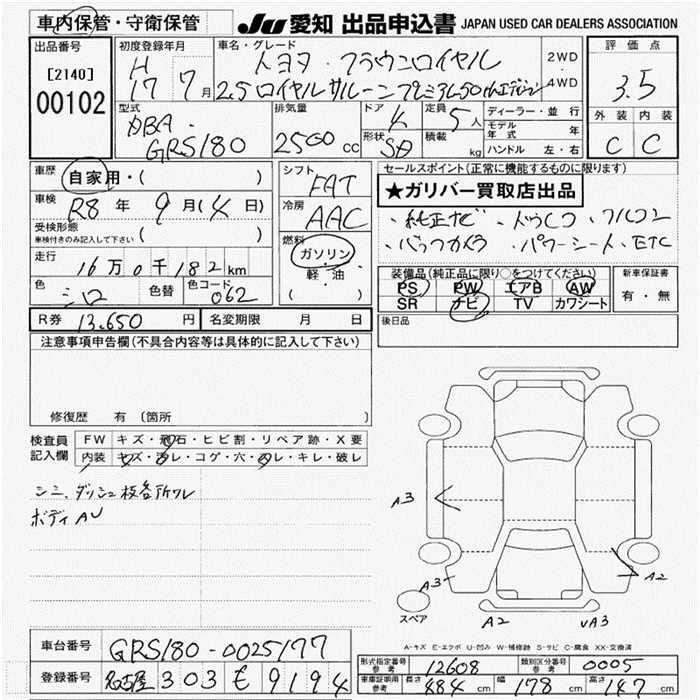 車内保管・守衛保管
JU 愛知 出品申込書 JAPAN USED CAR DEALERS ASSOCIATION
出品番号
[2140]
00102
初度登録年月
H
17 7月
車名・グレード
トヨタ・クラウンロイヤル
2.5 ロイヤルサルーン プレミアム50thエディション
2WD
4WD
評価点
3.5
外装 内装
C C
型式
DBA-
GRS180
排気量
2500 cc
ドア 4
形状 SD
定員 5人
積載 kg
ディーラー・並行
モデル年式 年
ハンドル 左・右
車歴
自家用・( )
車検
R8 年 9 月(4 日)
受検形態
車検付きのみ記入して下さい ( )
走行
16万0千182km
色 シロ 色替 色コード 062
シフト
FAT
冷房
AAC
燃料
ガソリン
軽・油
( )
セールスポイント(正常に機能するものに限ります)
★ガリバー買取店出品
・純正ナビ ・ドラレコ ・フルコン
・バックカメラ ・パワーシート、ETC
装備品(純正品に限り○をつけてください)
PS PW エアB AW
SR ナビ TV カワシート
新車保証書
有・無
R券 13,650 円 名変期限 月 日
後日品
注意事項申告欄(不具合内容等は具体的に記入して下さい)
修復歴 有(箇所
検査員記入欄
FW キズ・飛石・ヒビ割・リペア跡・X要
内装 キズ・汚レ・コゲ・穴・スレ・キレ・破レ
シミ、ダッシュ枝各所ワレ
ボディAU
A3
A3
A2
A2
A3
スペア
A-キズ E-エクボ U-凹み W-補修跡 S-サビ C-腐食 XX-交換済
車台番号 GRS180-0025177
登録番号 名古屋 303 そ 9194
形式指定番号 参考 12608 類別区分番号 参考 0005
車車証明用 参考 長さ 484 cm 幅 178 cm 高さ 147 cm